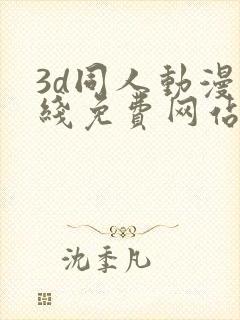 3d同人動漫
綫免費网佔
沈季凡